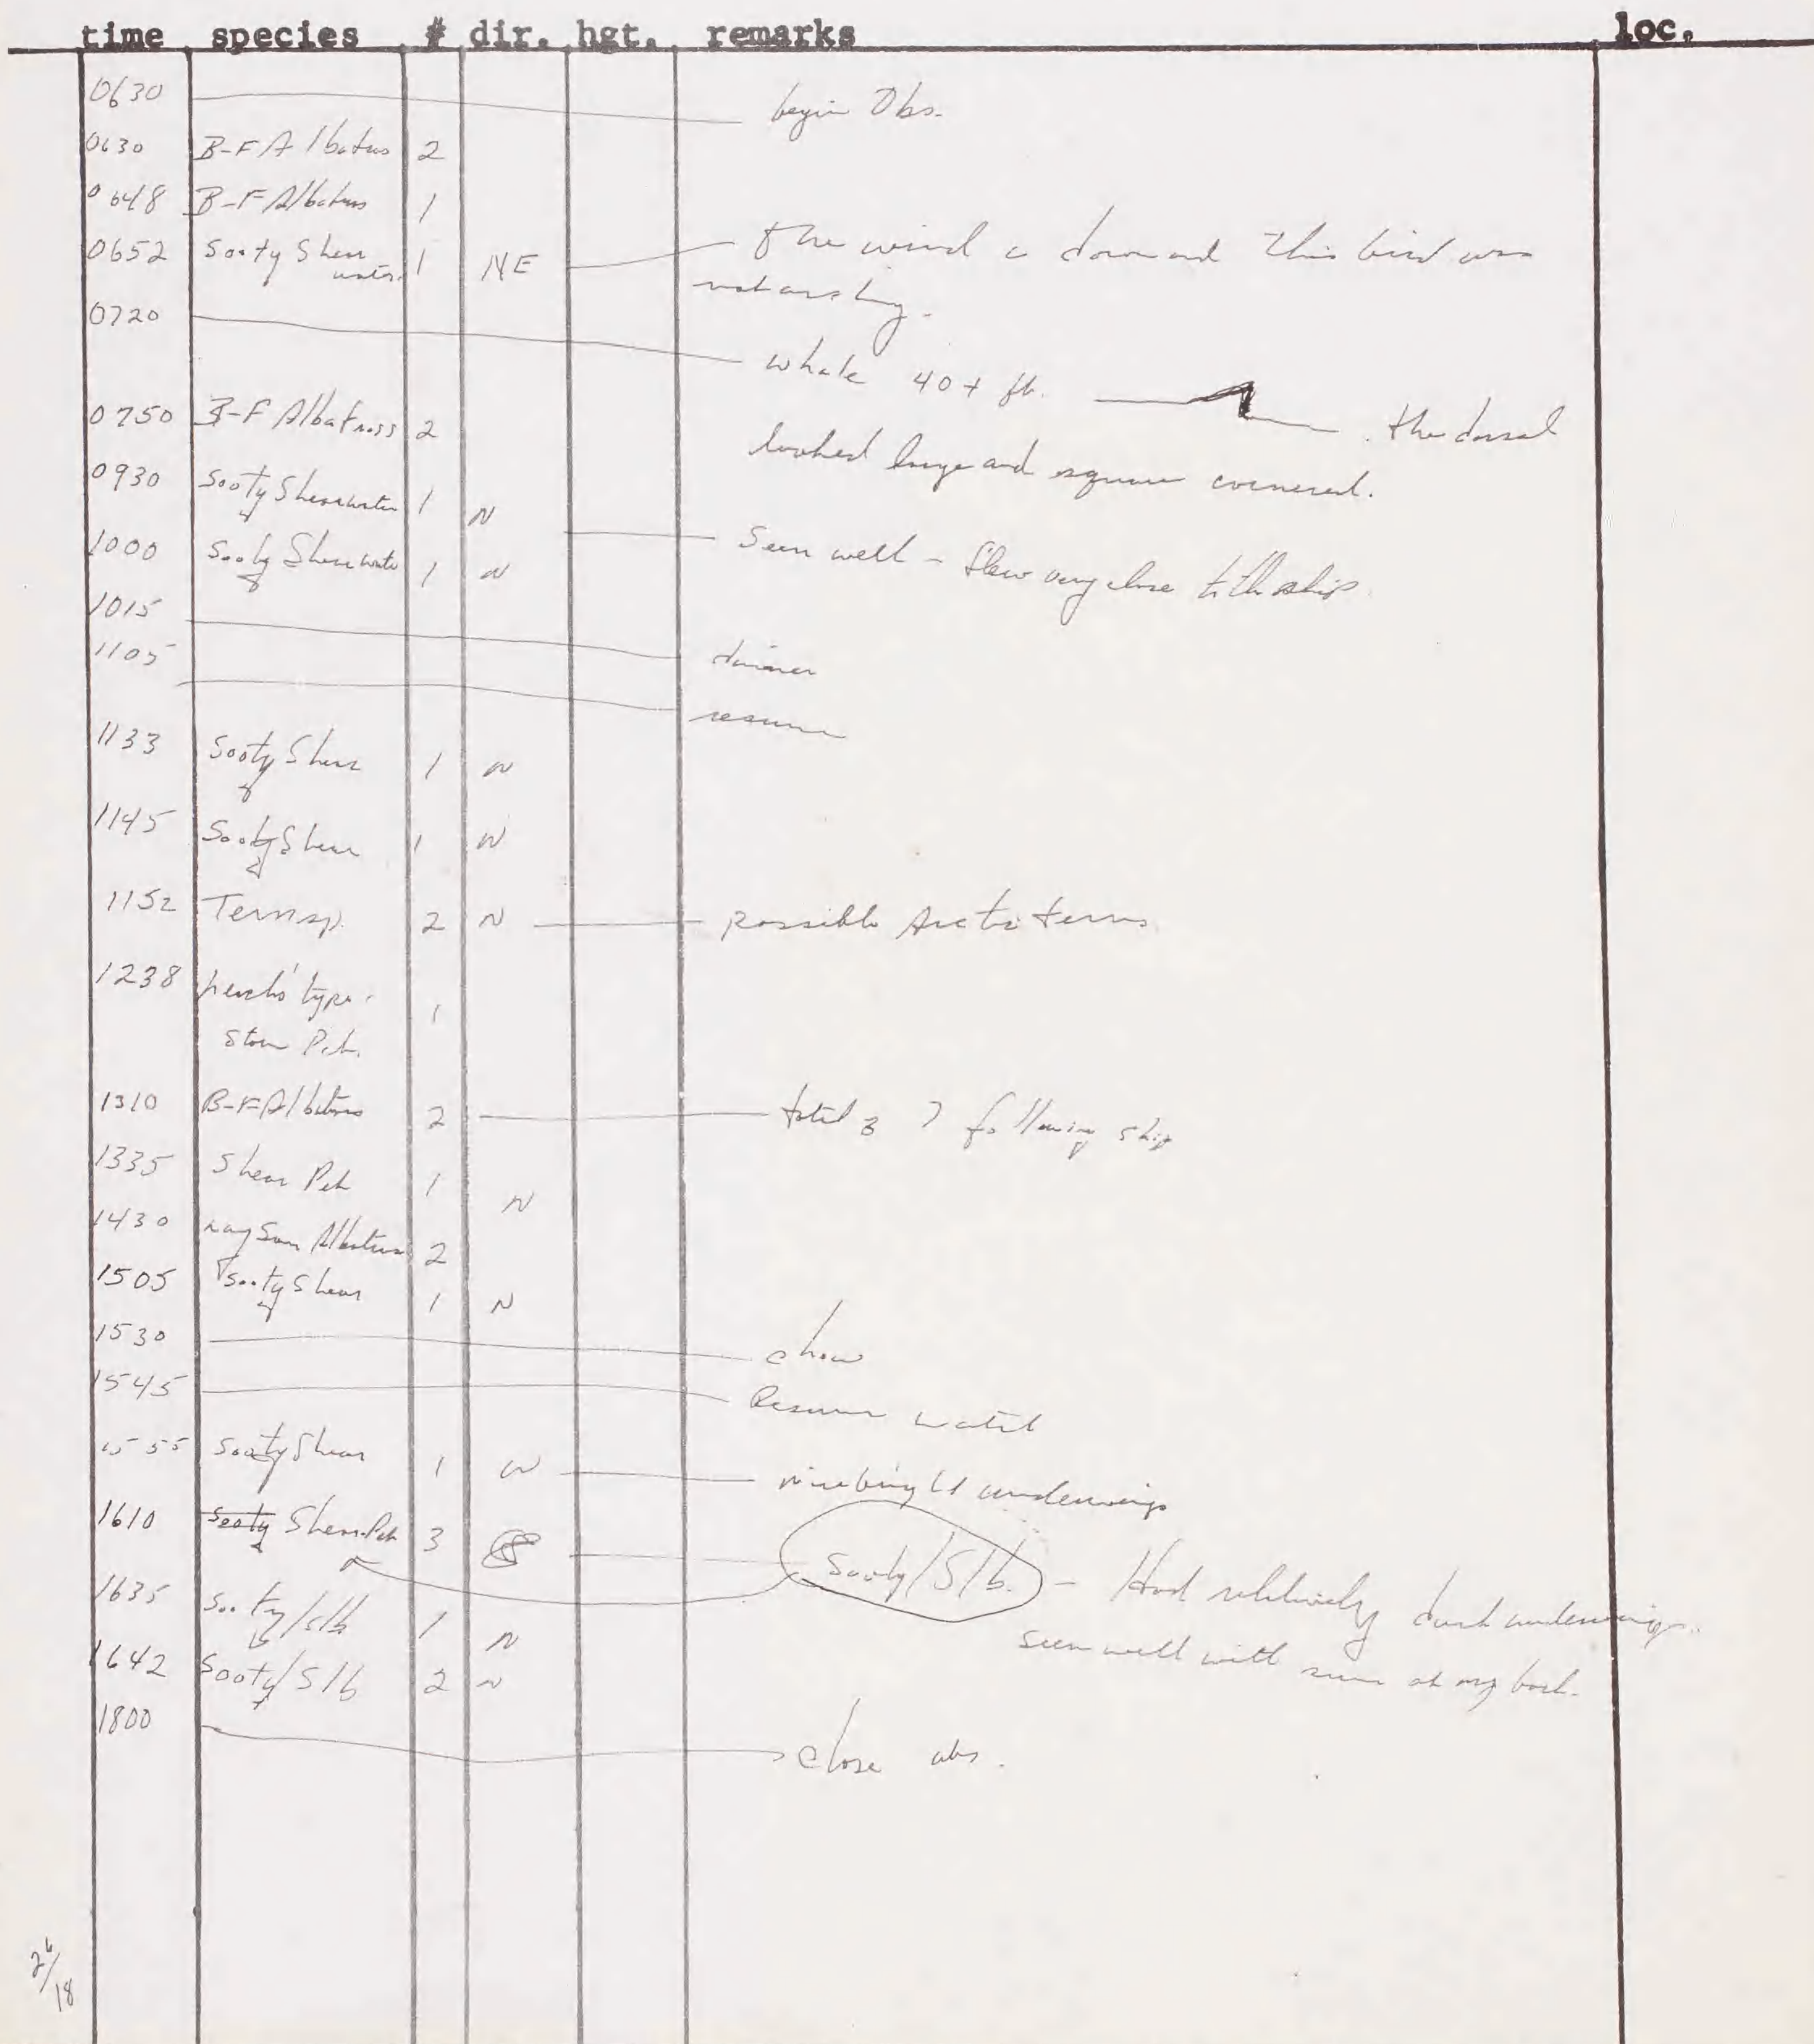 time species # dir. hgt. remarks loc.
0630 begin Obs.
0630 B-F Albatross 2
0648 B-F Albatross 1
0652 Sooty Shear water. 1 NE The wind is down and this bird was
not arcing.
0720 whale 40+ ft. . the dorsal
looked large and square cornered.
0750 B-F Albatross 2
0930 Sooty Shearwater 1 N
1000 Sooty Shearwater 1 N Seen well - flew very close to the ship.
1015 dinner
1105 resume
1133 Sooty Shear 1 N
1145 Sooty Shear 1 N
1152 Tern sp. 2 N possible Arctic terns
1238 Leach's type
Storm Pet. 1
1310 B-F Albatross 2 total 3 ? following ship
1335 Shear Pet 1 N
1430 Laysan Albatross 2
1505 Sooty Shear 1 N
1530 chow
1545 Resume watch
1555 Sooty Shear 1 W nice bright underwings
1610 Sooty Shear.Pet 3 Sooty/Slb. - Had relatively dark underwings.
seen well with sun at my back.
1635 Sooty/slb 1 N
1642 Sooty/Slb 2 N
1800 close obs.
26/18